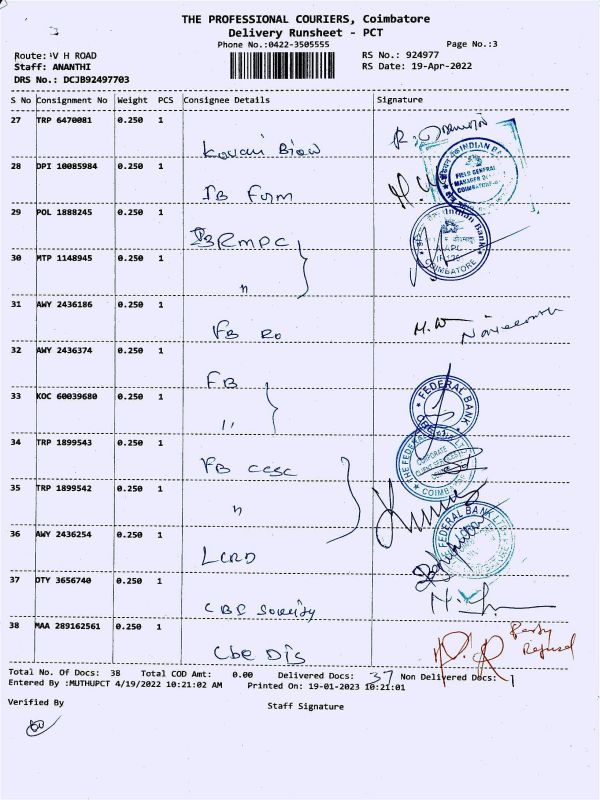 THE PROFESSIONAL COURIERS, Coimbatore
Delivery Runsheet - PCT
Phone No.:0422-3505555
Page No.:3
Route: V H ROAD
RS No.: 924977
Staff: ANANTHI
RS Date: 19-Apr-2022
DRS No.: DCJB92497703
S No Consignment No Weight PCS Consignee Details Signature
27 TRP 6470081 0.250 1
INDIAN
28 DPI 10085984 0.250 1
FIELD GENERAL
MANAGER
COIMBATORE
IB Form
29 POL 1888245 0.250 1
Indian Bank
IBRMPC
30 MTP 1148945 0.250 1
COIMBATORE
"
31 AWY 2436186 0.250 1
FB RO
32 AWY 2436374 0.250 1
FB
33 KOC 60039680 0.250 1
FEDERAL BANK
"
34 TRP 1899543 0.250 1
THE FEDERAL BANK LTD
CORPORATE
FB CCSC
COIMBATORE
35 TRP 1899542 0.250 1
"
36 AWY 2436254 0.250 1
FEDERAL BANK LTD
LCRD
37 OTY 3656740 0.250 1
CBE Society
38 MAA 289162561 0.250 1
Party
Refused
Cbe Dis
Total No. Of Docs: 38 Total COD Amt: 0.00 Delivered Docs: 37 Non Delivered Docs: 1
Entered By :MUTHUPCT 4/19/2022 10:21:02 AM Printed On: 19-01-2023 10:21:01
Verified By
Staff Signature